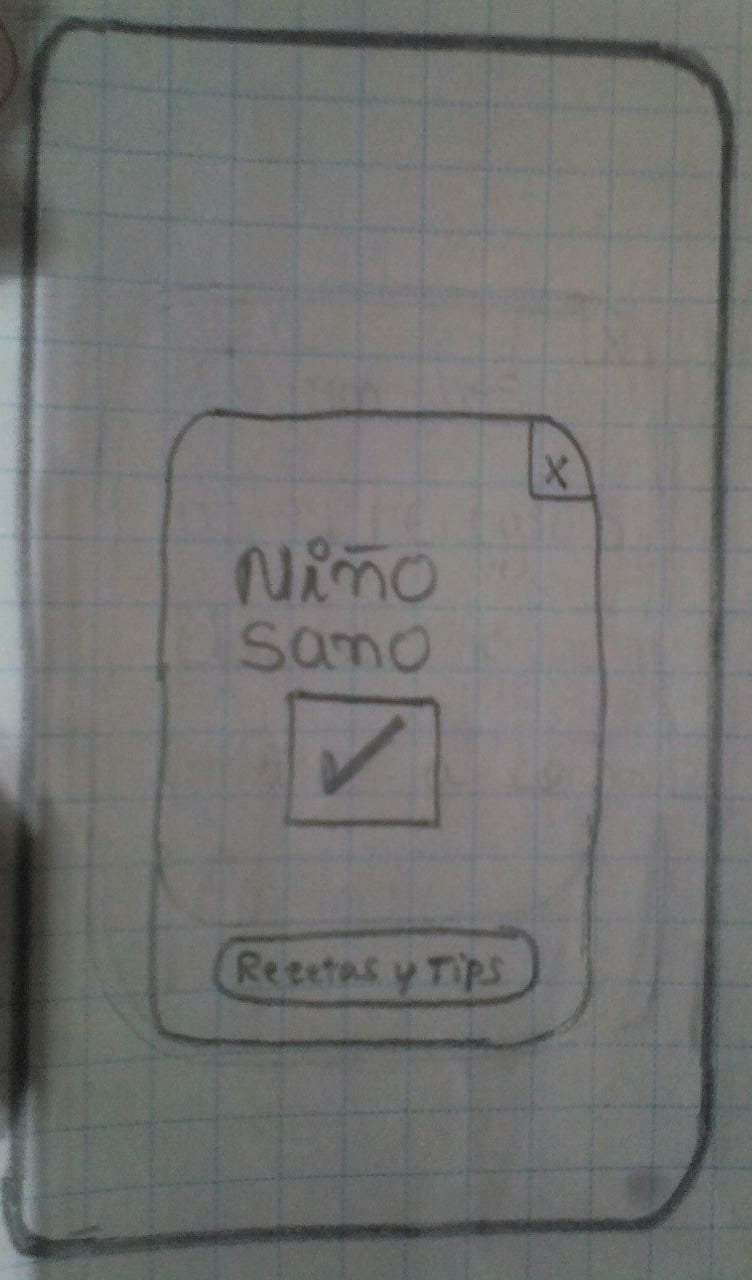 X
Niño
Sano
Recetas y Tips